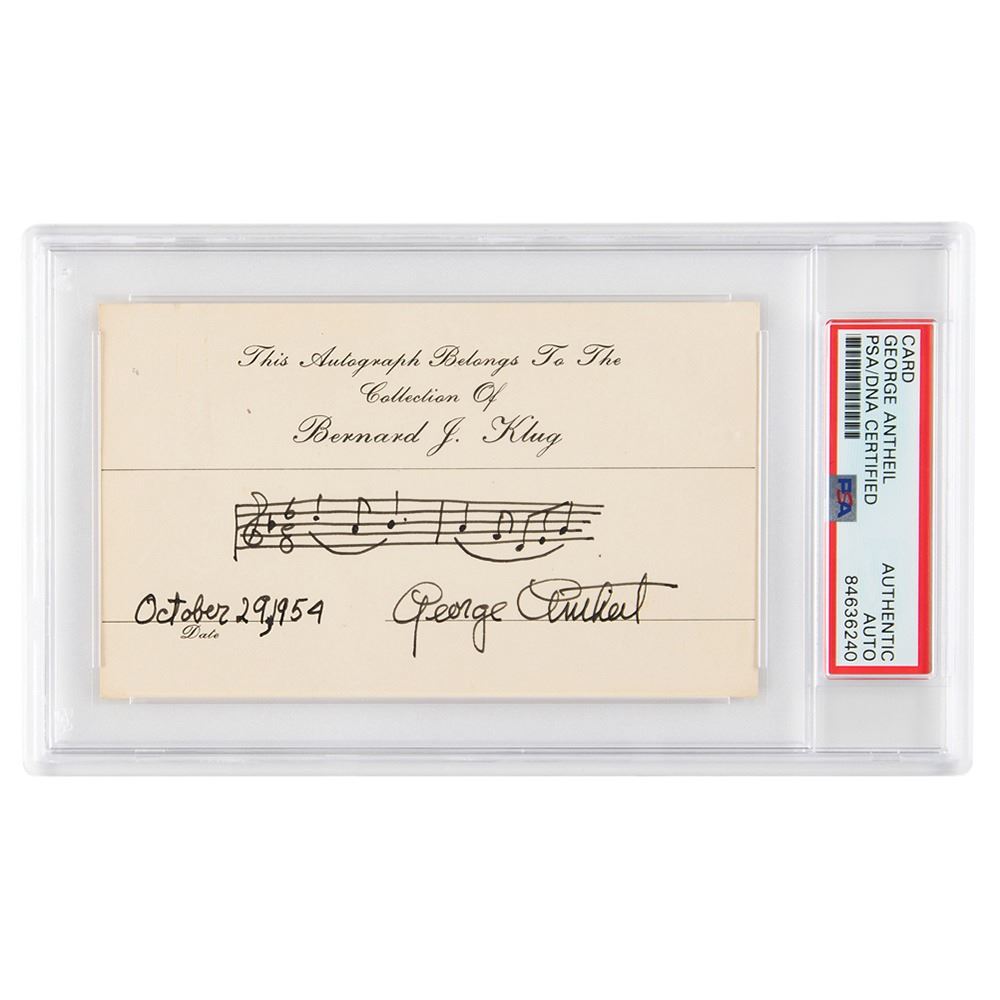 This Autograph Belongs To The
Collection Of
Bernard J. Klug
6
8
October 29, 1954
Date
George Antheil
CARD
GEORGE ANTHEIL
PSA/DNA CERTIFIED
PSA
AUTHENTIC
AUTO
84636240